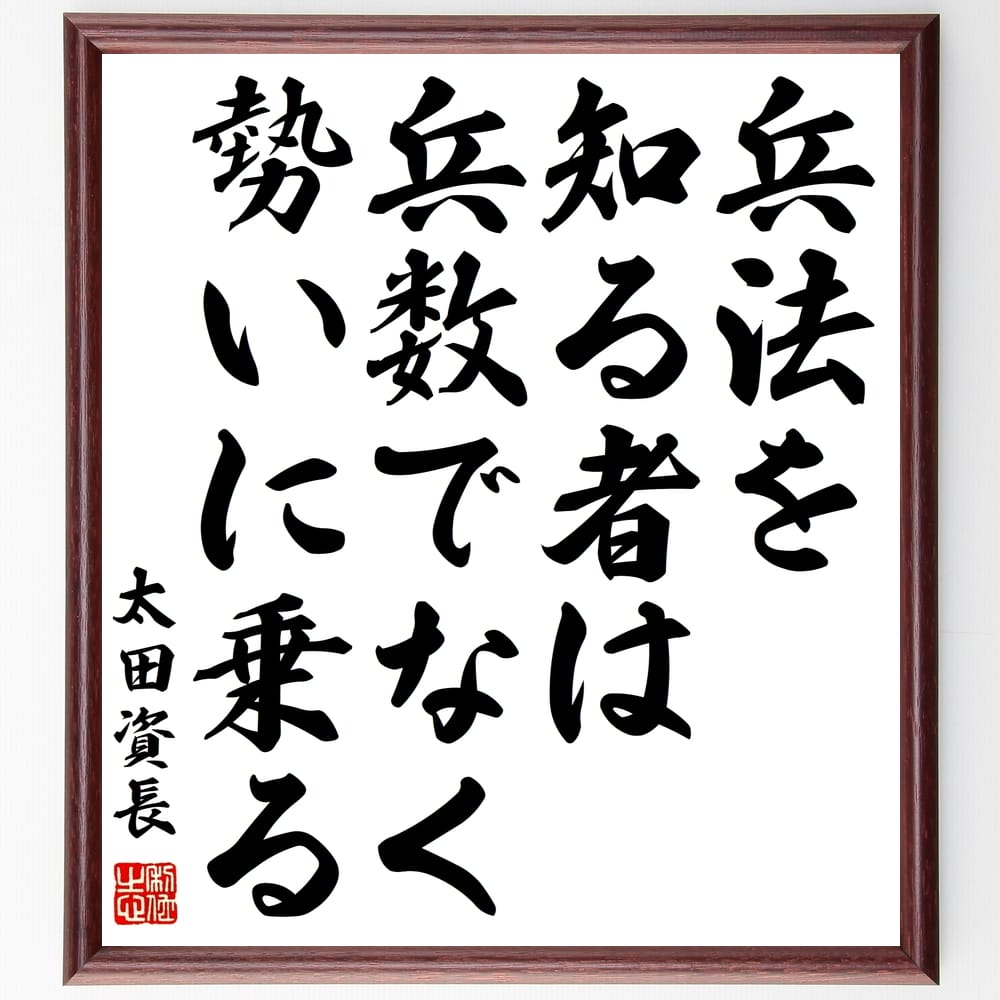 兵法を
知る者は
兵数でなく
勢いに乗る
太田資長